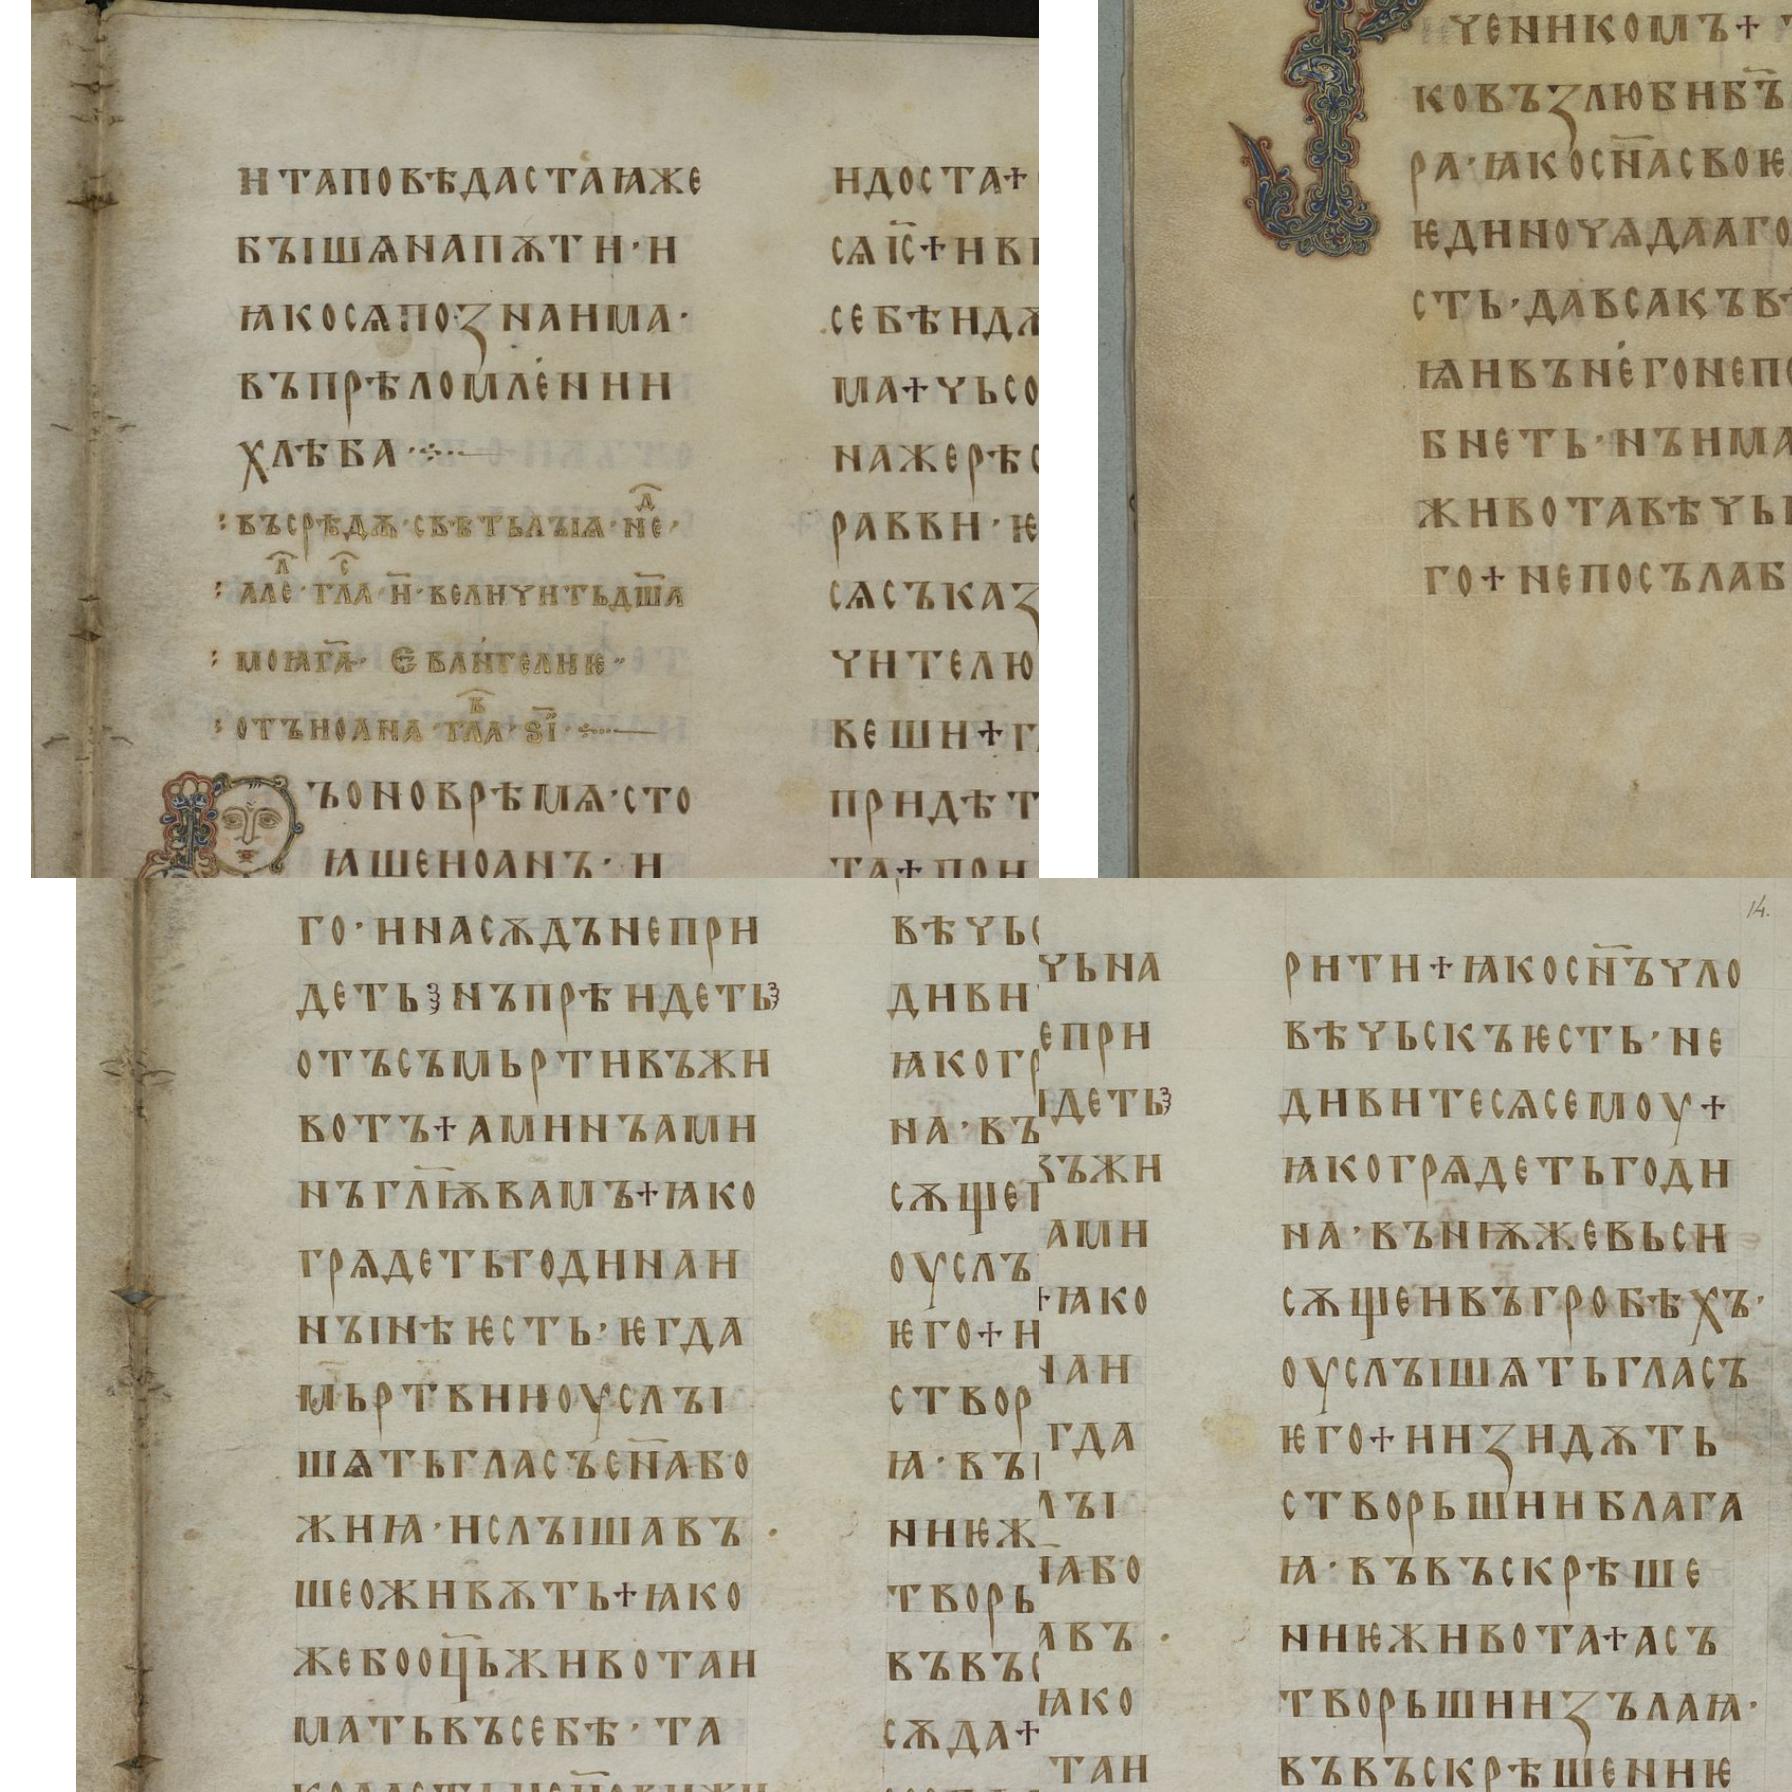 н та повѣдаста ꙗже
бꙑшѧ на пѫти · и
ꙗко сѧ позна има ·
въ прѣломлении
хлѣба ·
въ срѣдѫ · свѣтьлꙑꙗ · неⷣ ·
алеⷧ · глⷭа · н҃ · величить дш҃а
моꙗ г҃а · Єванꙉелиѥ ·
отъ иоана · глⷡа · ѕ҃і ·
ъ оно врѣмѧ · сто
ꙗше иоанъ · и
идоста+
сѧ і҃с+ и в
себѣ ид
ма+ чьсо
на же рѣ
равви · ѥ
сѧ съказ
чителю
веши+ г
придѣт
та+ при
ченикомъ+
ко възлюби б҃ъ
ра · ꙗко сн҃а своѥ
ѥдиночѧдааго
сть · да всакъ в
ѩи въ нѥго не п
бнеть · нъ има
живота вѣчь
го+ не посъла б
го · и на сѫдъ не при
деть нъ прѣидеть
отъ съмьрти въ жи
вотъ+ аминъ ами
нъ гл҃ѭ вамъ+ ꙗко
грѧдеть година и
нꙑнѣ ѥсть · ѥгда
мьртвии оуслꙑ
шѧть гласъ сн҃а бо
жиꙗ · и слꙑшавъ
ше оживѫть+ ꙗко
же бо оц҃ь живота и
мать въ себѣ · та
вѣчьс
диви
ꙗко гр
на · въ
сѫщеі
оуслъ
ѥго+ и
створ
ꙗ · въ
ниѥ ж
творь
въ въс
сѫда+
чьна
епри
идеть
въ жи
ами
+ꙗко
на и
гда
лꙑ
на бо
авъ
ꙗко
та и
14.
рити+ ꙗко сн҃ъ чло
вѣчьскъ ѥсть · не
дивите сѧ семоу+
ꙗко грѧдеть годи
на · въ нѭже вьси
сѫщеи въ гробѣхъ ·
оуслꙑшѧть гласъ
ѥго+ и изидѫть
створьшии блага
ꙗ · въ въскрѣше
ниѥ живота+ а съ
творьшии зълаꙗ ·
въ въскрѣшениѥ